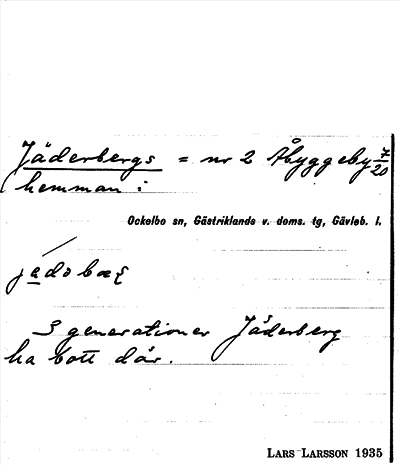 Jäderbergs = nr 2 Åbyggeby 7/20
hemman:
Ockelbo sn, Gästriklands v. doms. tg, Gävleb. l.
3 generationer Jäderberg
ha bott där.
LARS LARSSON 1935